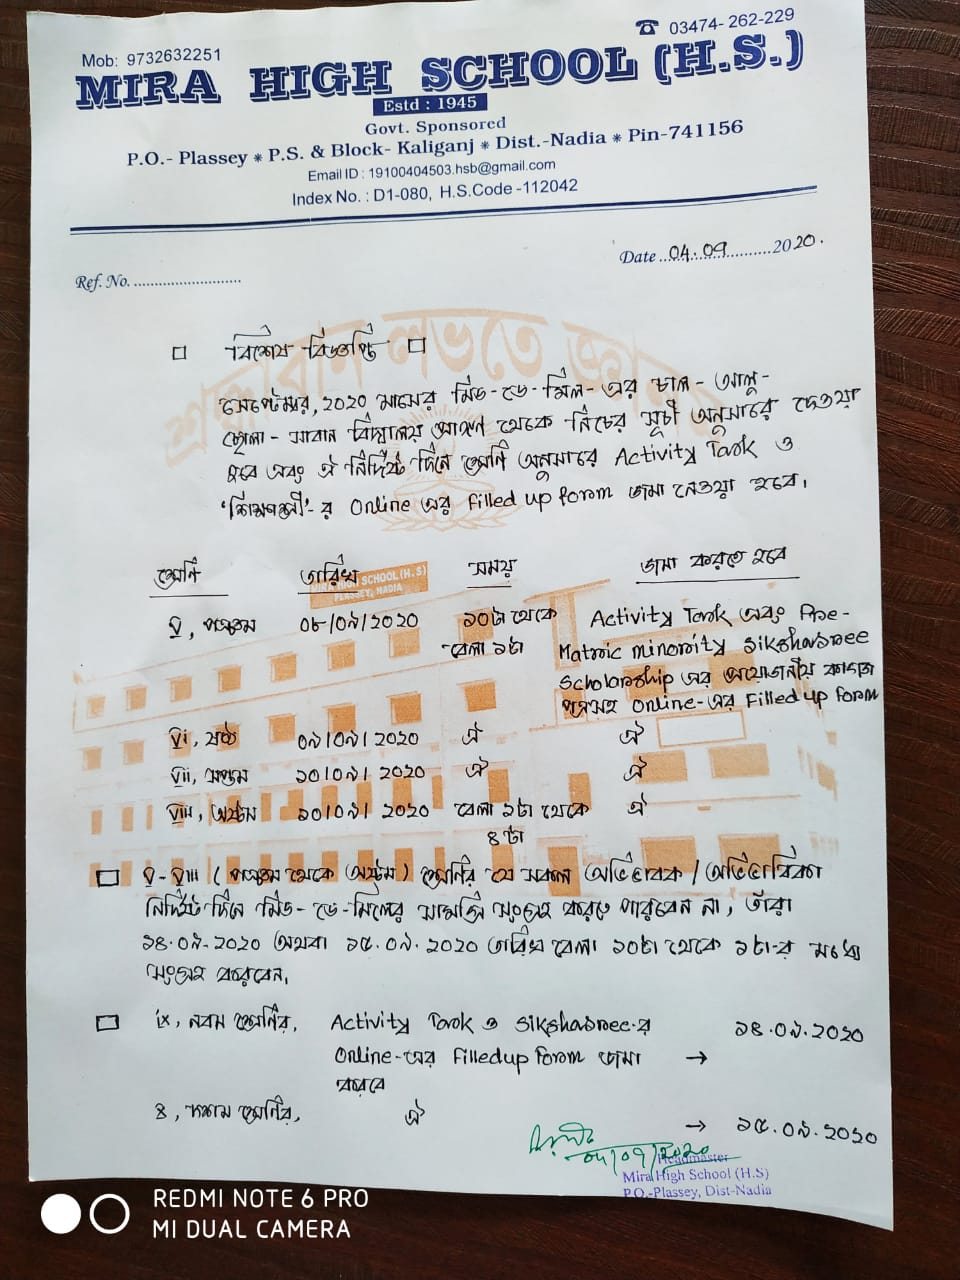 Mob: 9732632251
☎ 03474-262-229
MIRA HIGH SCHOOL (H.S.)
Estd : 1945
Govt. Sponsored
P.O.- Plassey * P.S. & Block- Kaliganj * Dist.-Nadia * Pin-741156
Email ID : 19100404503.hsb@gmail.com
Index No. : D1-080, H.S.Code -112042
Date ..04.09...........2020.
Ref. No. ..........................
শ্রদ্ধাবান লভতে জ্ঞানম
□ বিশেষ বিজ্ঞপ্তি □
সেপ্টেম্বর, 2020 মাসের মিড-ডে-মিল-এর চাল-আলু-
ছোলা-সাবান বিদ্যালয় প্রাঙ্গণ থেকে নিচের সূচী অনুসারে দেওয়া
হবে এবং ঐ নির্দিষ্ট দিনে শ্রেণি অনুসারে Activity Task ও
'শিক্ষাশ্রী'-র Online এর Filled up form জমা নেওয়া হবে।
MIRA HIGH SCHOOL (H.S)
PLASSEY, NADIA
শ্রেণি তারিখ সময় জমা করতে হবে
V, পঞ্চম ০৮/০৯/2020 ১০টা থেকে Activity Task এবং Pre-
বেলা ১টা Matric minority sikshasree
Scholarship এর প্রয়োজনীয় কাগজ
পত্রসহ Online-এর Filled up form
VI, ষষ্ঠ ০৯/০৯/2020 ঐ ঐ
VII, সপ্তম ১০/০৯/2020 ঐ ঐ
VIII, অষ্টম ১০/০৯/2020 বেলা ১টা থেকে ঐ
৪টা
□ V-VIII (পঞ্চম থেকে অষ্টম) শ্রেণির যে সকল অভিভাবক/অভিভাবিকা
নির্দিষ্ট দিনে মিড-ডে-মিলের সামগ্রি সংগ্রহ করতে পারবেন না, তাঁরা
১৪.০৯.2020 অথবা ১৫.০৯.2020 তারিখ বেলা ১০টা থেকে ১টা-র মধ্যে
সংগ্রহ করবেন।
□ ix, নবম শ্রেণির, Activity Task ও sikshasree-র ১৪.০৯.2020
Online-এর Filled up form জমা →
করবে
x, দশম শ্রেণির, ঐ → ১৫.০৯.2020
04/09/2020
Headmaster
Mira High School (H.S)
P.O.-Plassey, Dist-Nadia
REDMI NOTE 6 PRO
MI DUAL CAMERA